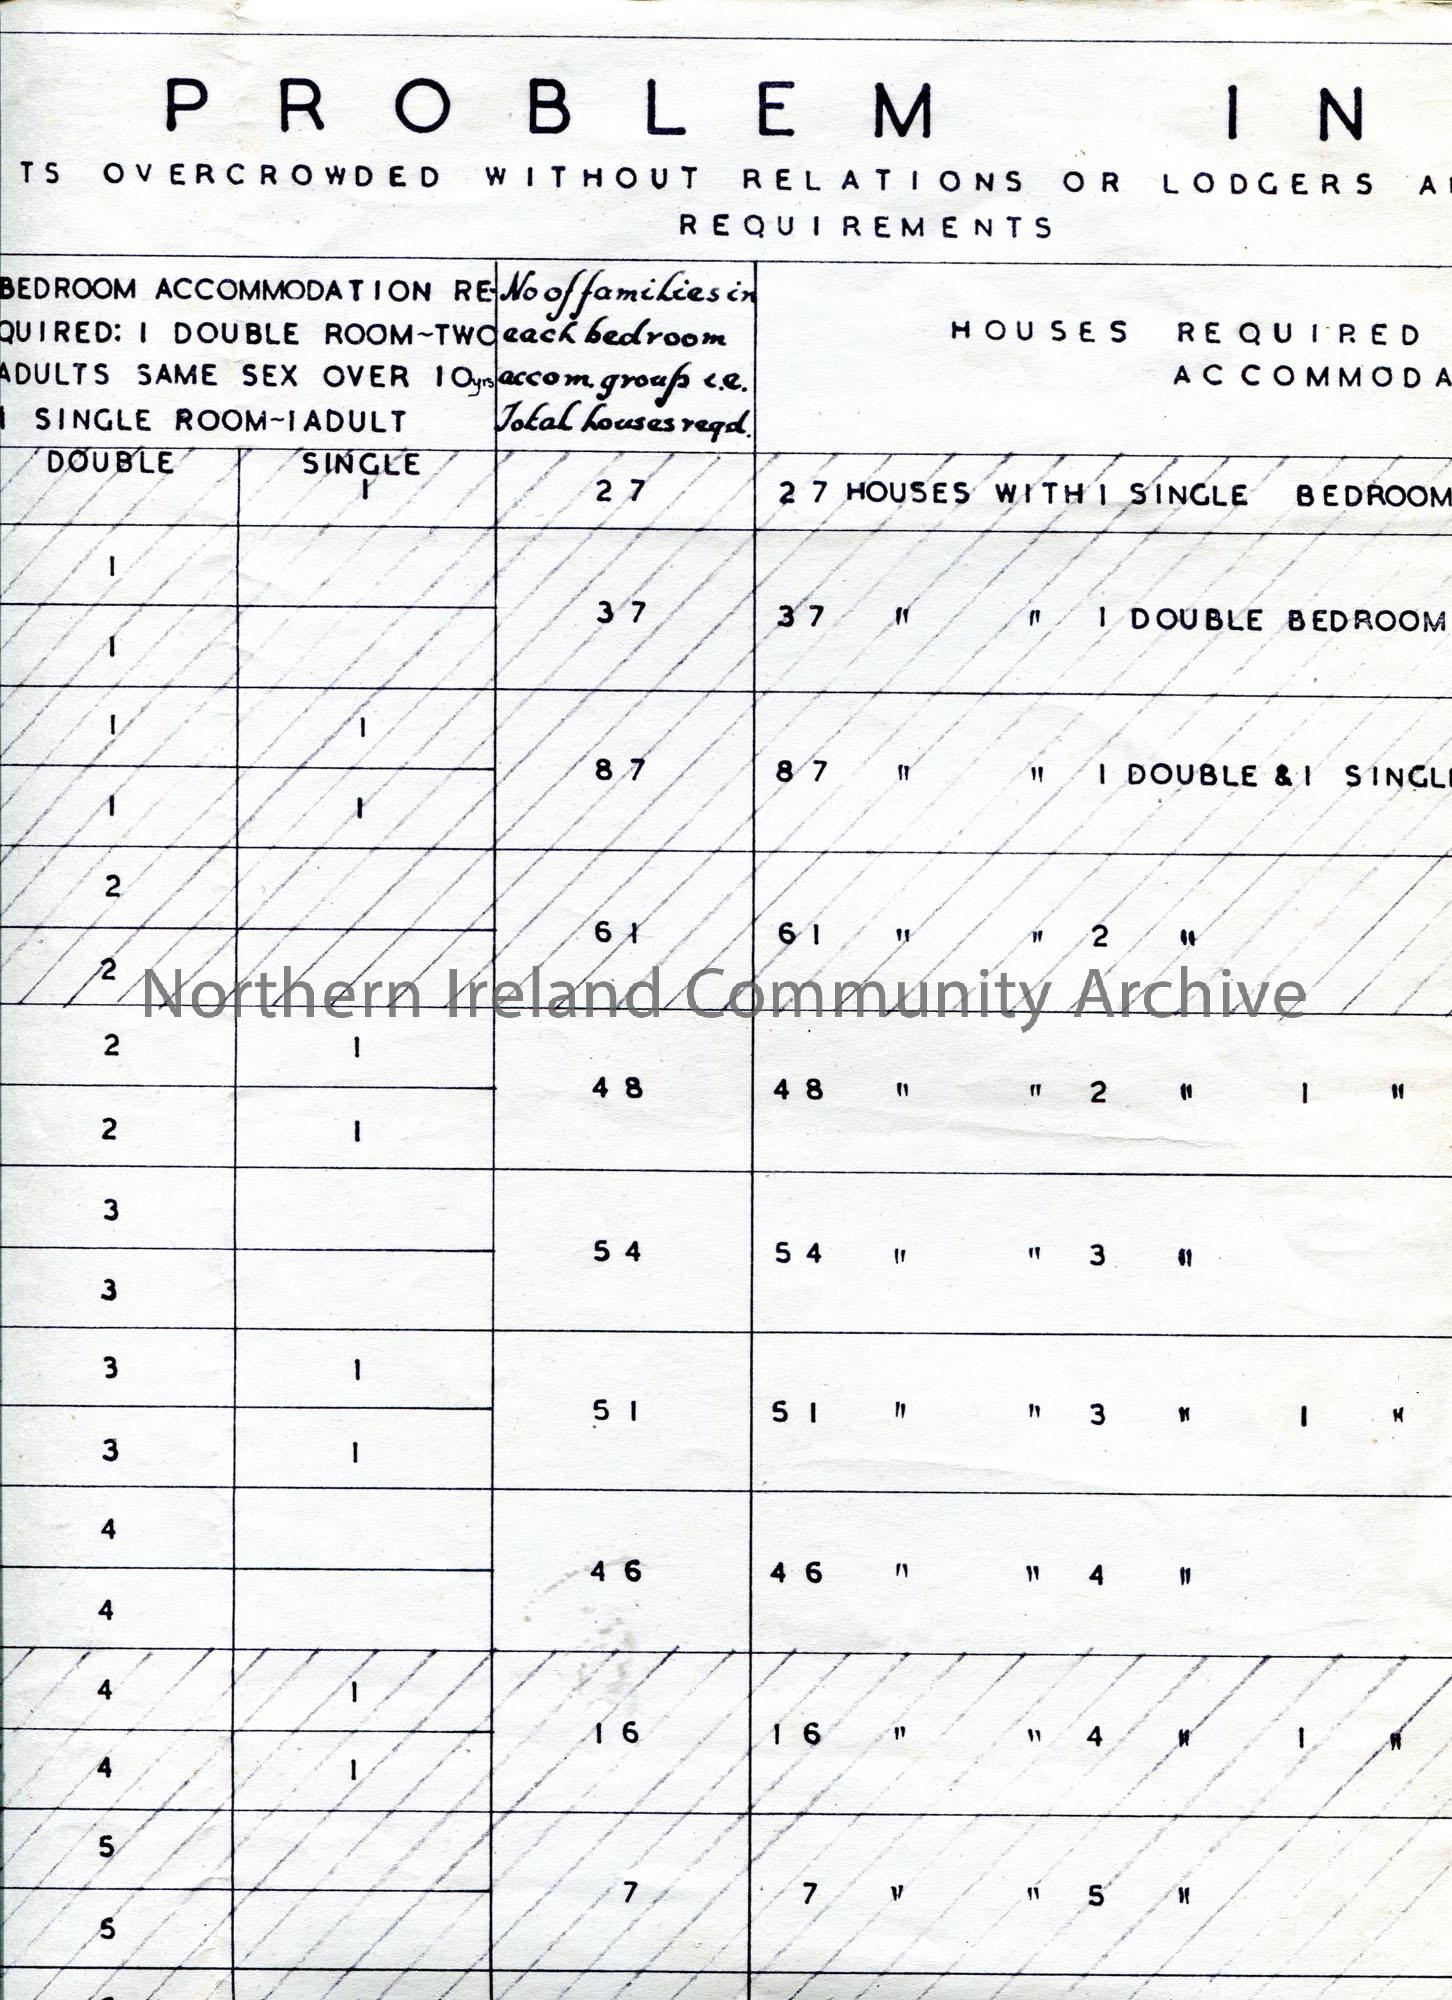 PROBLEM IN
TS OVERCROWDED WITHOUT RELATIONS OR LODGERS
REQUIREMENTS
BEDROOM ACCOMMODATION RE-
QUIRED: 1 DOUBLE ROOM~TWO
ADULTS SAME SEX OVER 10yrs
1 SINGLE ROOM~1 ADULT
No of families in
each bedroom
accom. group i.e.
Total houses reqd.
HOUSES REQUIRED
ACCOMMODA
DOUBLE SINGLE
1 27 27 HOUSES WITH 1 SINGLE BEDROOM
1
37 37 " " 1 DOUBLE BEDROOM
1
1 1
87 87 " " 1 DOUBLE & 1 SINGLE
1 1
2
61 61 " " 2 "
2
Northern Ireland Community Archive
2 1
48 48 " " 2 " 1 "
2 1
3
54 54 " " 3 "
3
3 1
51 51 " " 3 " 1 "
3 1
4
46 46 " " 4 "
4
4 1
16 16 " " 4 " 1 "
4 1
5
7 7 " " 5 "
5